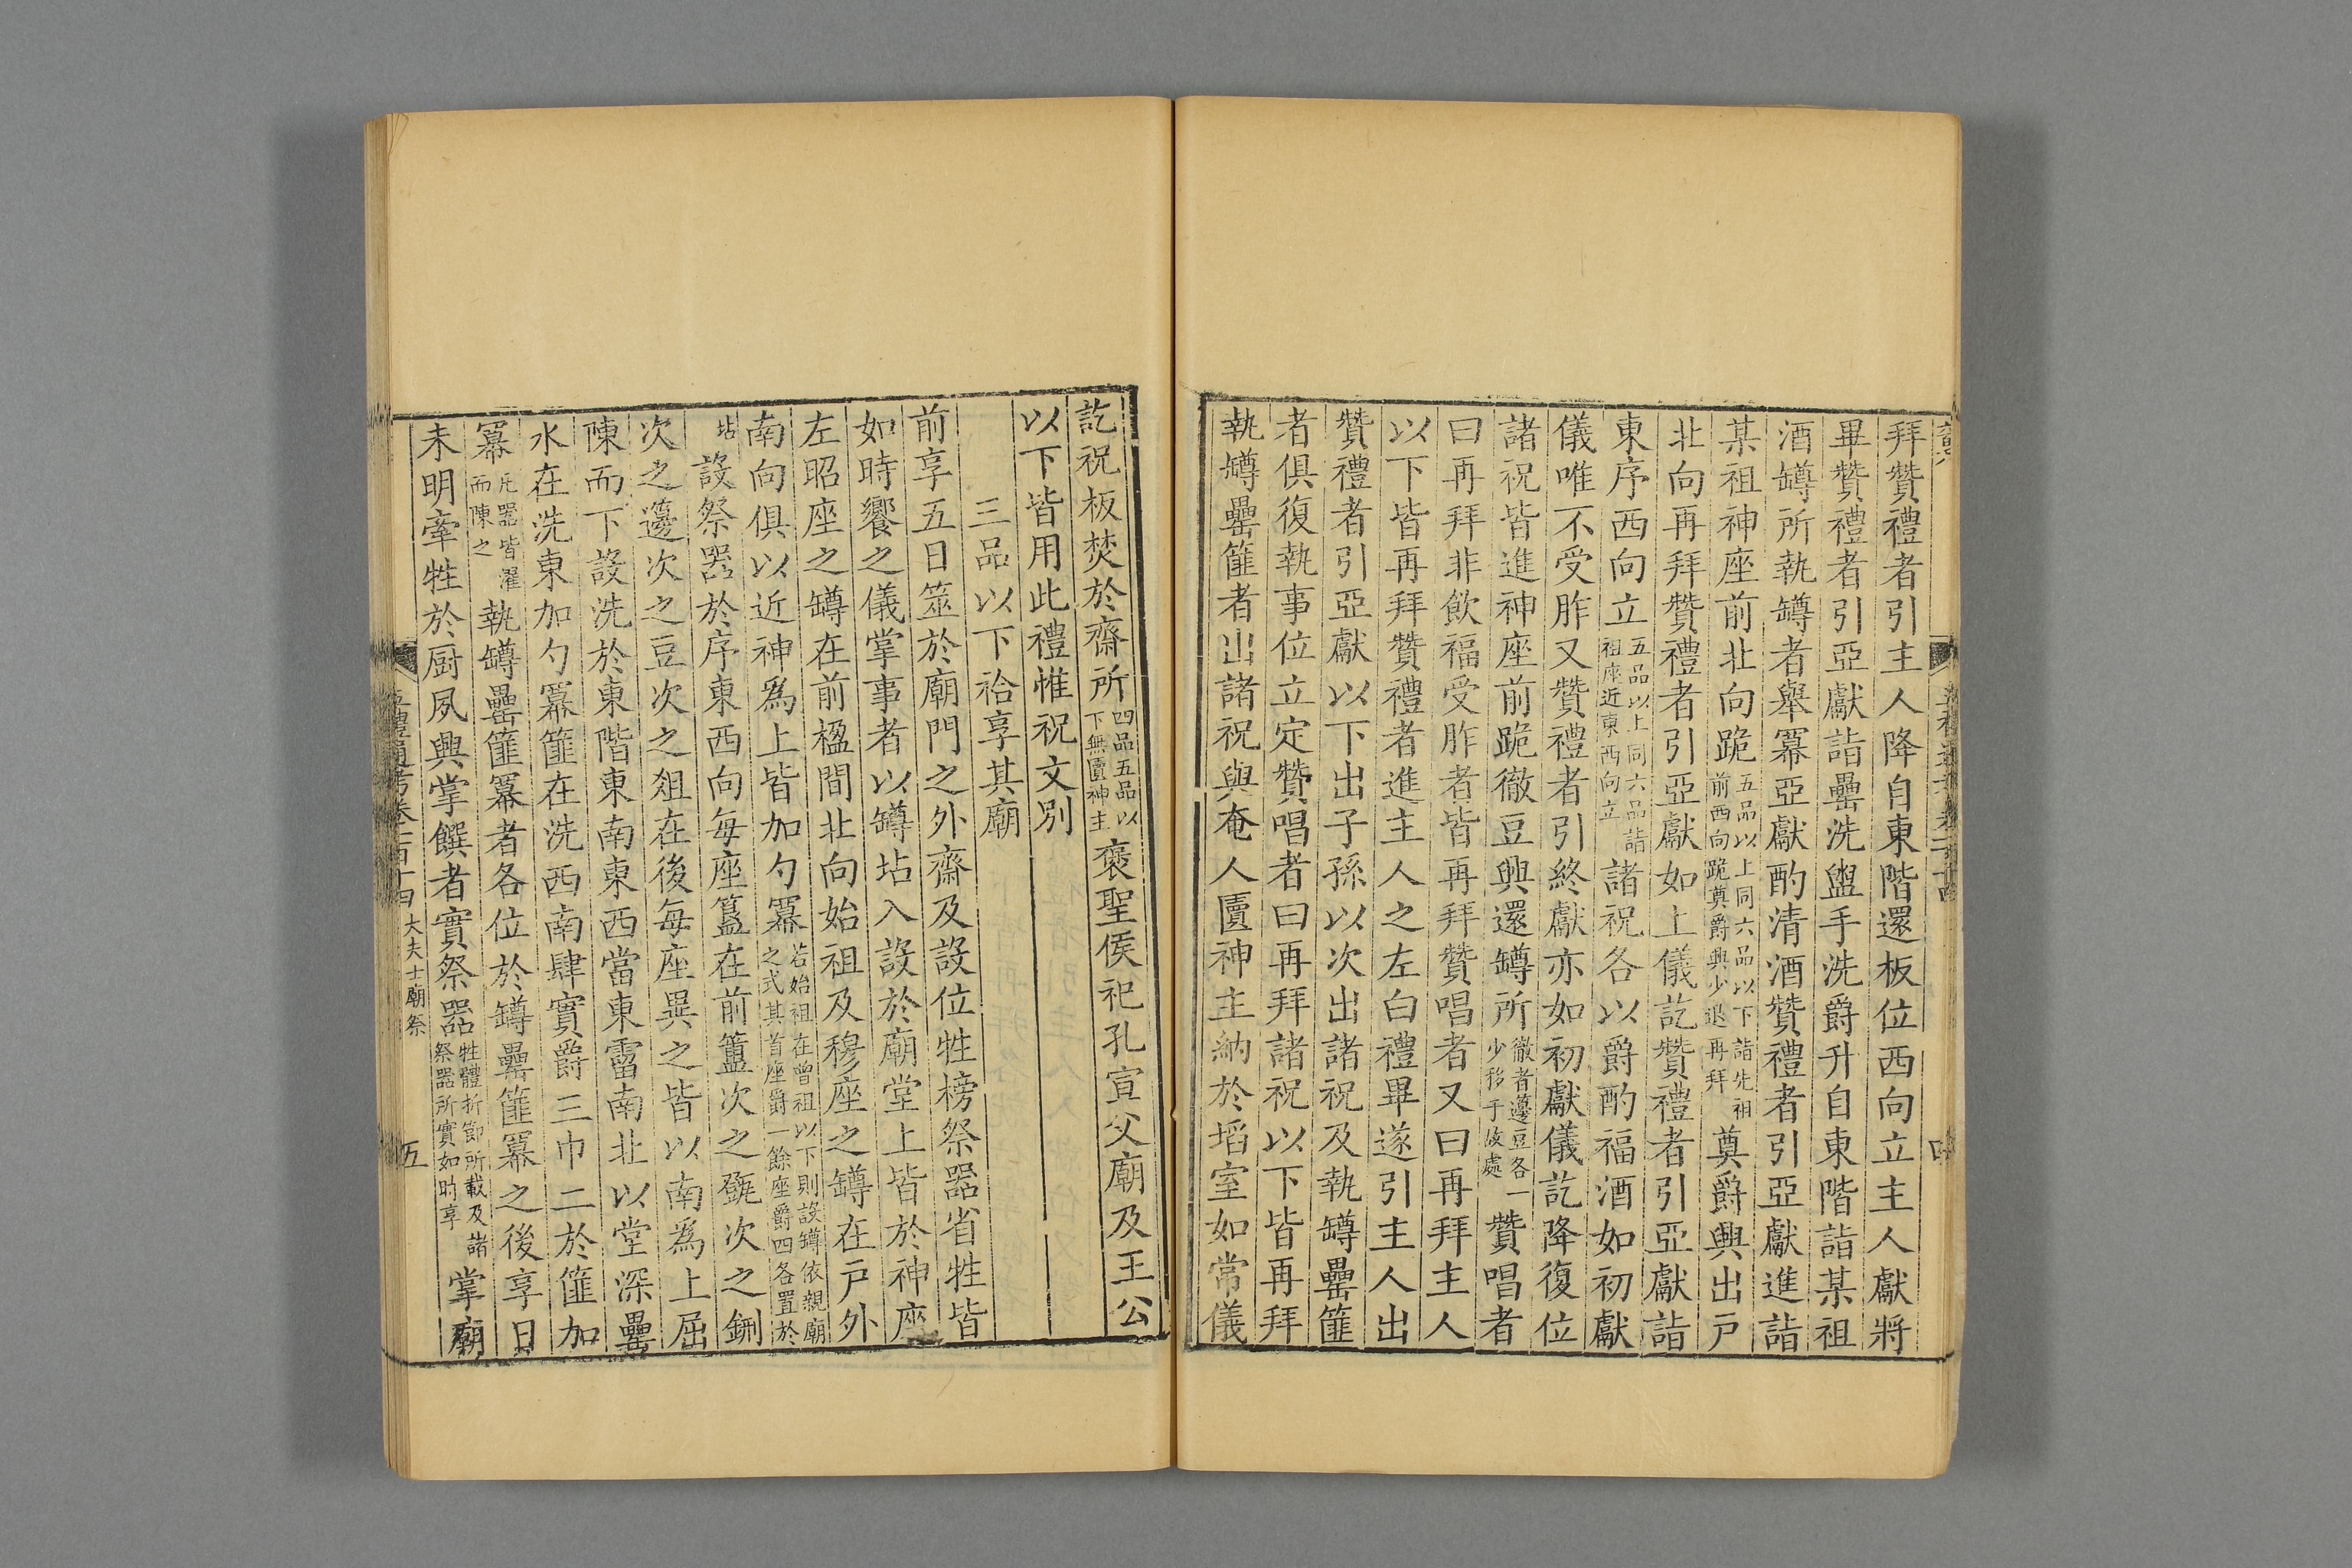 拜贊禮者引主人降自東階還板位西向立主人獻將
畢贊禮者引亞獻詣罍洗盥手洗爵升自東階詣某祖
酒罇所執罇者舉羃亞獻酌清酒贊禮者引亞獻進詣
某祖神座前北向跪五品以上同六品以下詣先祖前西向跪奠爵興少退再拜奠爵興出戸
北向再拜贊禮者引亞獻如上儀訖贊禮者引亞獻詣
東序西向立五品以上同六品詣祖座近東西向立諸祝各以爵酌福酒如初獻
儀唯不受胙又贊禮者引終獻亦如初獻儀訖降復位
諸祝皆進神座前跪徹豆興還罇所徹者籩豆各一少移于故處贊唱者
曰再拜非飲福受胙者皆再拜贊唱者又曰再拜主人
以下皆再拜贊禮者進主人之左白禮畢遂引主人出
贊禮者引亞獻以下出子孫以次出諸祝及執罇罍篚
者俱復執事位立定贊唱者曰再拜諸祝以下皆再拜
執罇罍篚者出諸祝與奄人匵神主納於埳室如常儀
訖祝板焚於齋所四品五品以下無匵神主褒聖侯祀孔宣父廟及王公
以下皆用此禮惟祝文別
三品以下祫享其廟
前享五日筮於廟門之外齋及設位牲榜祭器省牲皆
如時饗之儀掌事者以罇坫入設於廟堂上皆於神座
左昭座之罇在前楹間北向始祖及穆座之罇在戸外
南向俱以近神爲上皆加勺羃若始祖在曾祖以下則設罇依親廟之式其首座爵一餘座爵四各置於
坫設祭器於序東西向每座簋在前簠次之㽅次之鉶
次之籩次之豆次之俎在後每座異之皆以南爲上屈
陳而下設洗於東階東南東西當東霤南北以堂深罍
水在洗東加勺羃篚在洗西南肆實爵三巾二於篚加
羃凡器皆濯而陳之執罇罍篚羃者各位於罇罍篚羃之後享日
未明宰牲於厨夙興掌饌者實祭器牲體折節所載及諸祭器所實如時享掌廟
五禮通考卷一百十四 大夫士廟祭 五